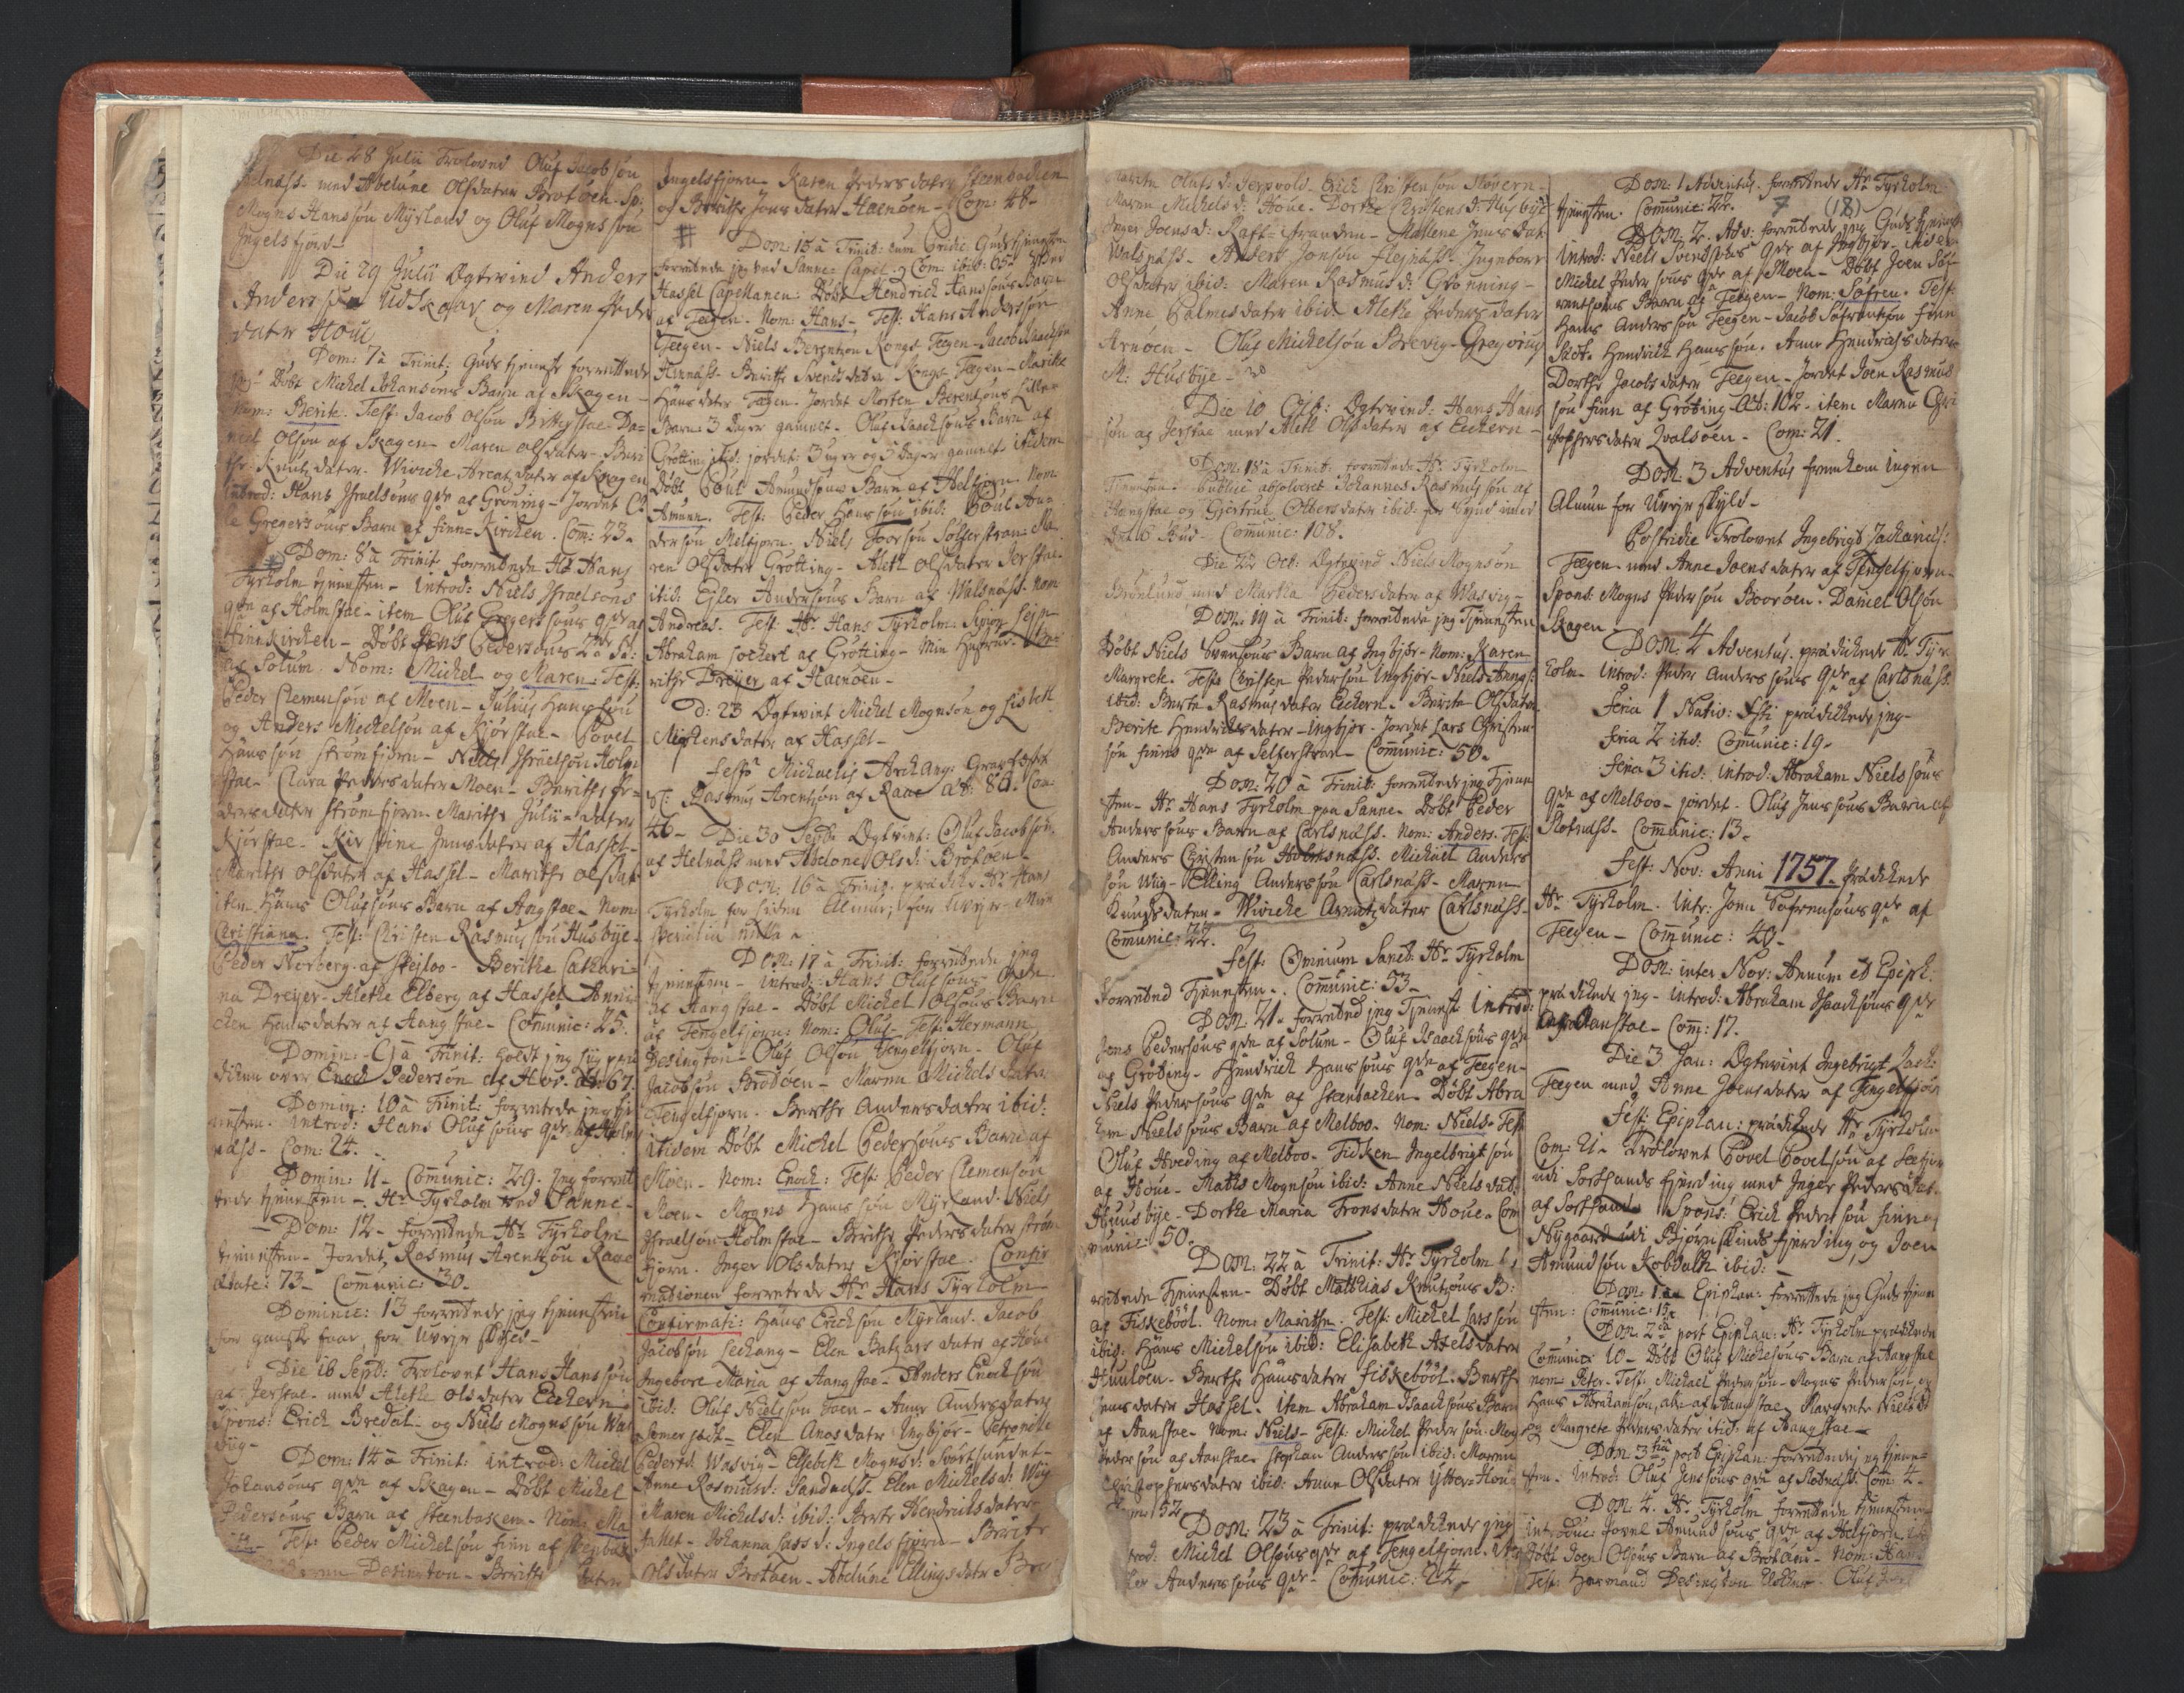 Die 28 Julii Troloved Oluf Jacobsøn
med Abelune Olsdater Brotøen. Sp:
Mogns Hanssøn Myrland og Oluf Mognssøn
Ingelsfjord –
Die 29 Julii Ægtevied Anders
Anderssøn Udskogar og Maren Peders
dater Houe
Dom: 7 à Trinit: Gudstjenest forrettede
jeg – Døbt Michel Johansøns Barn af Skagen –
Nom: Berite. Test: Jacob Olsøn Da=
niel Olsøn af Skagen – Maren Olsdater – Beri
the Knutzdater. Wiviche Arentzdater af Skagen
Introd: Hans Israelsøns qde af Grøning – Jordet O
le Gregersøns Barn af Finne=Kirchen. Com: 23.
Dom: 8 à Trinit forrettede Hr Hans
Tyrholm tjenesten – Introd: Niels Israelsøns
qde af Holmstae – item Oluf Gregerssøns qde af
Finnekirchen – Døbt Jens Pedersøns 2de
af Solum. Nom: Michel og Maren. Test:
Peder Clemensøn af Moen – Julius Hanssøn
og Anders Michelsøn af Kjørstae – Povel
Hanssøn Strømfjorn – Niels Israelsøn Holm
stae – Clara Pedersdater Moen – Berithe Pe=
dersdater Strømfjorn Marithe Julii=dater
Kjørstae – Kirstine Jensdater af Hassel –
Marithe Olsdater af Hassel – Marithe Olsdat
item Hans Olufsøns Barn af Angstae – Nom:
Christiana. Test: Christen Rasmussøn Husbye –
Peder Norberg af Skjelloo – Berithe Cathari=
na Dreyer – Alethe Elberg af Hassel Anni
chen Hansdater af Aangstae – Comunic: 25.
Domin: 9 à Trinit: holdt jeg liigpræ
diken over Enoch Pedersøn af Æt: 67.
Domin: 10 à Trinit: forrettede jeg tje
nesten. Introd: Hans Olufsøns qde af
nass – Com: 24.
Domin: 11 – Comunic: 29. Jeg forret
tede tjenesten – Hr Tyrholm ved Sanne –
Dom: 12 – forrettede Hr Tyrholm
tjenesten – Jordet Rasmus Arentsøn Raae
Ætate: 73 – Comunic: 30.
Dominic: 13 forrettede jeg tjenesten
for ganske faae, for Uveyr skyld –
Die 16 Sept: Trolovet Hans Hanssøn
af Jerstae – med Aleth Olsdater Eechern
Spons: Erich Bredal – og Niels Mognssøn Was
viig –
Dom: 14 à Trinit: Introd: Michel
Johansøns qde af Skagen – Døbt Michel
Pedersøns Barn af Steenbachen – Nom: Ma
Test: Peder Michelsøn finn af Stenbak
Desington – Berithe dater
Ingelsfjorn – Karen Pedersdater Steenbachen
og Berithe Jonsdater Haenøen – Com: 48 –
Dom: 15 à Trinit: cum Pridie Gudstjenesten
forrettede jeg ved Sanne=Capel. Com: ibid: 65 –
Hassel Capellanen: Døbt Hendrich Hanssøns Barn
af Teegen – Nom: Hans – Test: Hans Anderssøn
Teegen – Niels Berentsøn Kongs Teegen – Jacob Isaachsøn
Finnass – Berithe Svendsdater Kongs=Teegen – Marithe
Hansdater Teegen. Jordet Morten Berentsøns Lille
Barn: 3 Dager gammelt – Oluf Isaachsøns Barn af
Grøtting ibid. jordet: 3 uger og 3 Dage gammelt itidem
Døbt Poul Amundsøns Barn af Melfjorn. Nom:
Amunn. Test: Peder Hanssøn ibid: Poul An=
dersøn Melfjorn. Niels Joorsøn Sølferstran – Ma
ren Olsdater Grøtting – Aleth Olsdater Jerstae.
itid: Ejler Andersøns Barn af Walsnass – Nom:
Andreas. Test: Hr Hans Tyrholm.
Abraham Lochert af Grøtting – Min Hustrue. Be=
rithe Dreyer af Haenøen –
D: 23 Ægteviet Michel Mognssøn og Lisbeth
Mogensdater af Hassel –
Festo Michaelis Archang: Graefæst
Sr: Rasmus Arentsøn af Raae Æt: 80. Com:
46 – Die 30 Septbr Ægteviet: Oluf Jacobsøn
af Helnæss med Abelone Olsd: Brotøen –
Dom: 16 à Trinit: prædichte Hr Hans
Tyrholm for liden Almue, for Uveyr –
Dom: 17 à Trinit: forrettede jeg
tjenesten – Introd: Hans Olufsøns qde
af Aangstae – Døbt Michel Olsøns Barn
af Tengelfjorn: Nom: Oluf – Test: Hermann
Desington – Oluf Olsøn Tengelfjorn – Oluf
Jacobsøn Brodøen – Maren Michelsdater
Tengelfjorn. Berthe Andersdater ibid:
itidem Døbt Michel Pedersøns Barn af
Moen – Nom: Enoch: Test: Peder Clemensøn
Moen – Mogns Hanssøn Myrland – Niels
Israelsøn Holmstae – Berithe Pedersdater Strøm
fjorn. Inger Olsdater Kjørstae. Confir
mationen forrettede Hr Hans Tyrholm
Confirmati: Hans Erichsøn Myrland. Jacob
Jacobsøn Lechang – Elen Baltzars dater af Houe
Ingebore Maria af Aangstae – Anders Enochsøn
ibid: Oluf Nielssøn Houn – Anne Andersdater
Somerset – Elen Amosdatr Ingbjør – Petronele
Pedersd: Wasvig – Elsebeth Mognsd: Svortsundet –
Anne Rasmusd: Sandnass – Elen Michelsd: Wiig
Maren Michelsd: ibid: Berte Hendrichsdater
Johanna Larsd: Ingelsfjorn – Berite
Olsdater Brotøen – Abelune Ellingsdater
Olufsd: Jerpvold – Erich Christensøn Møvern –
Maren Michelsd: Houe. Dorthe Christensd: Husbye
Inger Joensd: Raftstranden – Mallene Jensdat:
Walsnass – Anders Jonsøn Flesnass. Ingebore
Olsdater ibid: Maren Rasmusd: Grønning –
Anne Palmesdater ibid. Alethe Pedersdater
Arnøen – Oluf Michelsøn Brevig – Gregorius
N: Husbye –
Die 10 Octb: Ægtevied: Hans Hans
søn af Jerstae med Aleth Olsdater af Eechern –
Dom: 18 à Trinit: forrettede Hr Tyrholm
Tjenesten. Publice absolveret Johannes Rasmussøn af
Hongstae og Gjertrue Olbersdater ibid: for Synd imod
det 6 Bud – Comunic: 108.
Die 22 Oct: Ægteviid Niels Mognsøn
Brønlund med Martha Pedersdater af Wasvig –
Dom: 19 à Trinit: forrettede jeg Tjenesten
Døbt Niels Svensøns Barn af Ingbjør – Nom: Karen
Margrete. Test: Christen Pedersøn Ingbjør – Niels
ibid: Berte Rasmusdater Eechern. Berite Olsdater
Berite Hendrichsdater – Ingbjør – Jordet Lars Christen
søn finns qde af Selferstran – Comunic: 50.
Dom: 20 à Trinit: forrettede jeg Tjenne
sten – Hr Hans Tyrholm paa Sanne – Døbt Peder
Anderssøns Barn af Carlsnass. Nom: Anders. Test:
Anders Christensøn Holmsnass. Michael Anders
søn Wiig – Elling Anderssøn Carlsnass – Maren
Knudsdater – Wiviche Arentzdater Carlsnass –
Comunic: 22.
Fest: Omnium Sanct: Hr Tyrholm
Forretted Tjenesten – Comunic: 53 –
Dom: 21 – forretted jeg Tjenest Introd:
Jens Pedersøns qde af Solum – Oluf Isaachsøns qde
af Grøting – Hendrich Hanssøns qde af Teegen –
Niels Pedersøns qde af Steenbachen – Døbt Abra
ham Nielssøns Barn af Melboe – Nom: Niels – Test:
Oluf Hveding af Melboo – Tidken Ingelbrigtsøn
af Houe – Maths Mognsøn ibid: Anne Nielsdat:
Huusbye – Dorthe Maria Tronsdater Houe – Com
munic: 50.
Dom: 22 à Trinit: Hr Tyrholm for
rettede Tjenesten – Døbt Matthias Knutsøns B:
af Fiskebøøl. Nom: Marithe. Test: Michel Larssøn
ibid: Hans Michelsøn ibid: Elisabeth Axelsdater
Huuløen – Berthe Hansdater Fiskebøøl. Berthe
Jensdater Hassel – Item Abraham Isaachsøns Barn
af Aanstae – Nom: Niels – Test: Michel Pedersøn – Mogns
Pedersøn af Aanstae – Stephan Andersøn ibid: Maren
Christophersdater ibid: Anne Olsdater Ytter=Houe
Com: 52
Dom: 23 à Trinit: prædichede jeg
trod: Michel Olsøns qde af Tengelfjorn.
Anderssøns qde – Comunic: 24.
Dom: 1 Adventus: forrettede Hr Tyrholm
tjenesten. Comunic: 22. 7 (18)
Dom: 2. Adv: forrettede jeg Gudstjenest
Introd: Niels Svendsøns qde af Ingbjør –
Michel Pedersøns qde af Moen – Døbt Joen Søf
rentsøns Barn af Teegen – Nom: Søfren. Test:
Hans Anderssøn Teegen – Jacob Søfrentsøn finn
Hendrich Hanssøn. Anne Hendrichsdater
Dorthe Jacobsdater Teegen – Jordet Joen Rasmus
søn finn af Grøting Æt: 102 – item Maren Chri
stophersdater Qvalsøen – Com: 21.
Dom: 3 Adventus fremkom ingen
Almue for Uveyr skyld –
Postridie Trolovet Ingebrigt Zacharias:
Teegen – med Anne Joensdater af Tengelfjorn –
Spons: Mogns Pedersøn Boorøen. Daniel Olsøn
Skagen
Dom: 4 Adventus. prædichede Hr Tyr
holm – Introd: Peder Anderssøns qde af Carlsnass.
Feria 1 Nativ: Xsti prædichede jeg –
Feria 2 itid: Comunic: 19.
Feria 3 itid: introd: Abraham Nielssøns
qde af Melboo – jordet – Oluf Jenssøns Barn af
Slotnass – Comunic: 13.
Fest: Nov: Anni 1757. prædichede
Hr Tyrholm. Intr: Joen Søfrensøns qde af
Teegen – Comunic: 40.
Dom: inter Nov: Annum et Epiph:
prædichede jeg – introd: Abraham Isaachsøns qde
af Aanstae – Com: 17.
Die 3 Jan: Ægteviet Ingebrigt Zach:
Teegen med Anne Joensdater af Tengelfjorn
Fest: Epiphan: prædichede Hr Tyrholm
Com: 21 – Trolovet Povel Povelsøn af
udi Sortlands fjerding med Inger Pedersdat:
af Sortland – Spons: Erich Pedersøn finn af
Nygaard udi Bjørnskinds fjerding, og Joen
Amundsøn Kobdalh ibid:
Dom: 1 à Epiphan: forrettede jeg Gudstjene
sten: Comunic: 15.
Dom 2da post Epiphan: Hr Tyrholm prædichede
Comunic: 10 – Døbt Oluf Michelsøns Barn af Aangstae
nom: Peter – Test: Michael Pedersøn – Mogns Pedersøn, og
Hans Abrahamsøn, alle af Aangstae, Margrete Nielsd:
og Margrete Pedersdater itid: af Aangstae –
Dom: 3tia post Epiphan: forrettede jeg tjene=
sten – Introd: Oluf Jenssøns qde af Slotnass: Com: 4 –
Dom: 4. Hr Tyrholm forrettede tjenesten
introduc: Povel Amundsøns qde af Melfjorn.
Døbt Joen Olsøns Barn af Brotøen – Nom: Hans
Test: Hermand Desington Oluf